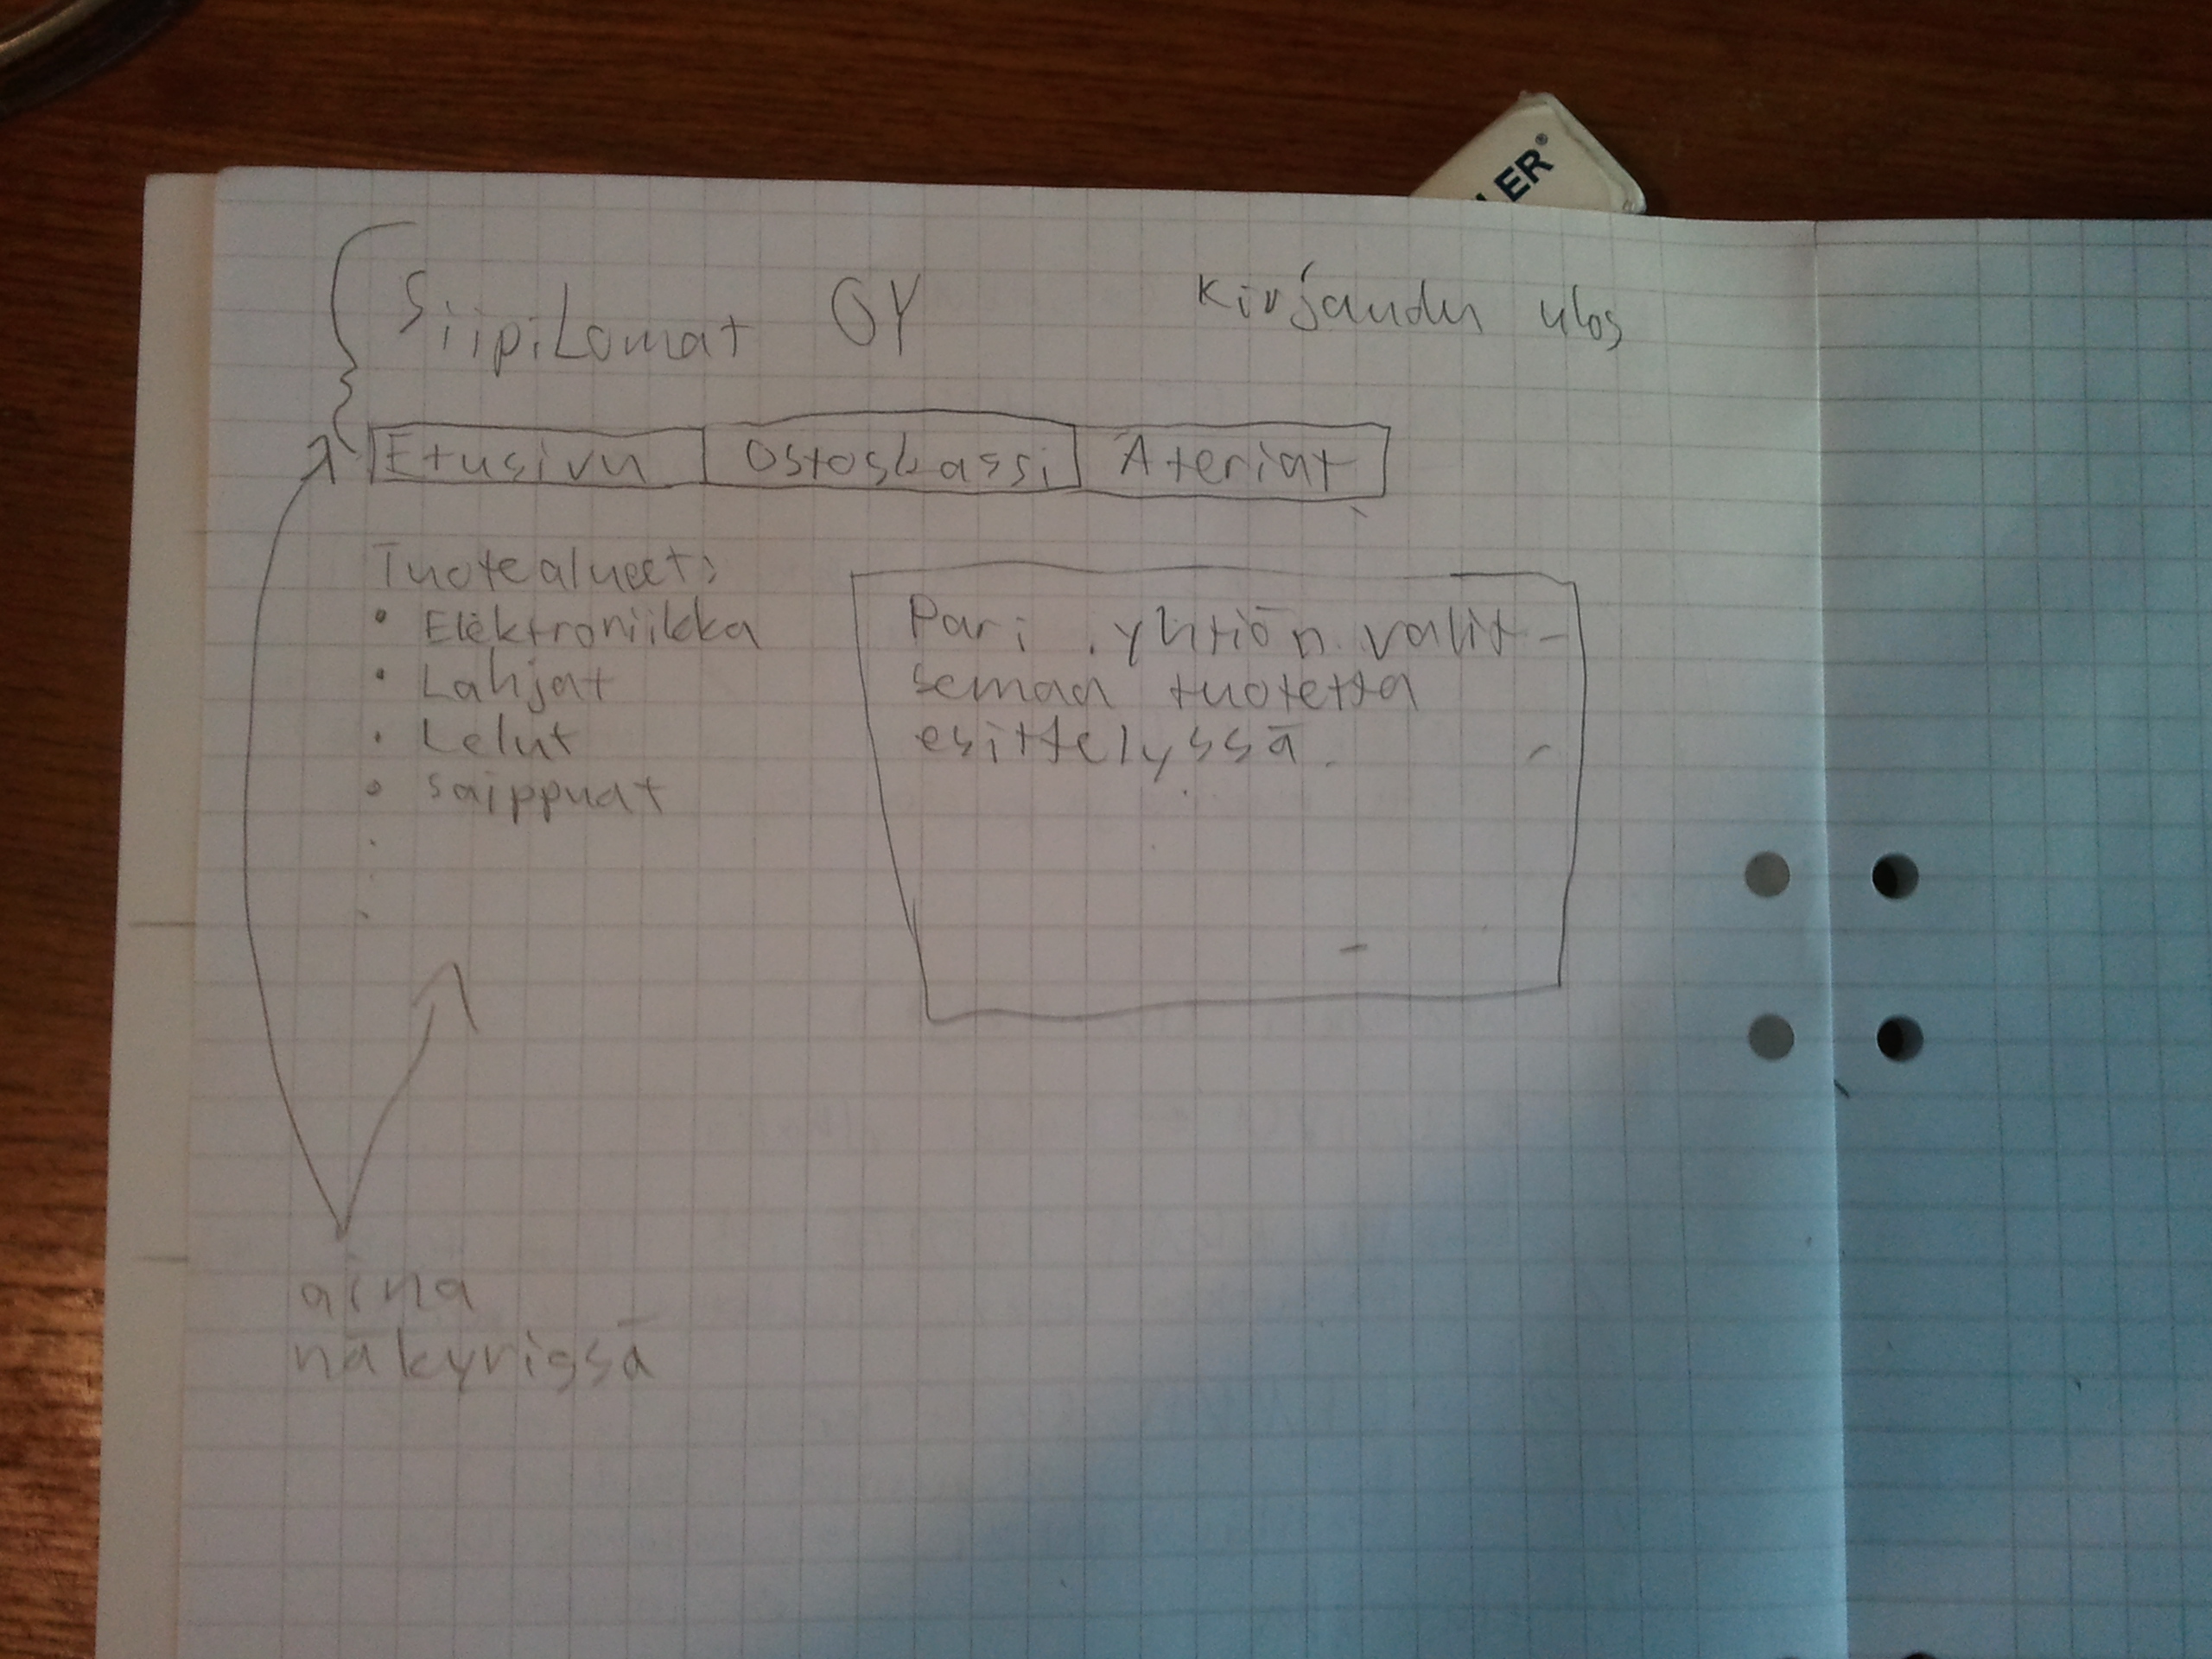 LER®
SiipiLomat OY
Kirjaudu ulos
Etusivu
Ostoskassi
Ateriat
Tuotealueet:
• Elektroniikka
• Lahjat
• Lelut
• Saippuat
Pari yhtiön valit-
seman tuotetta
esittelyssä.
aina
näkyvissä